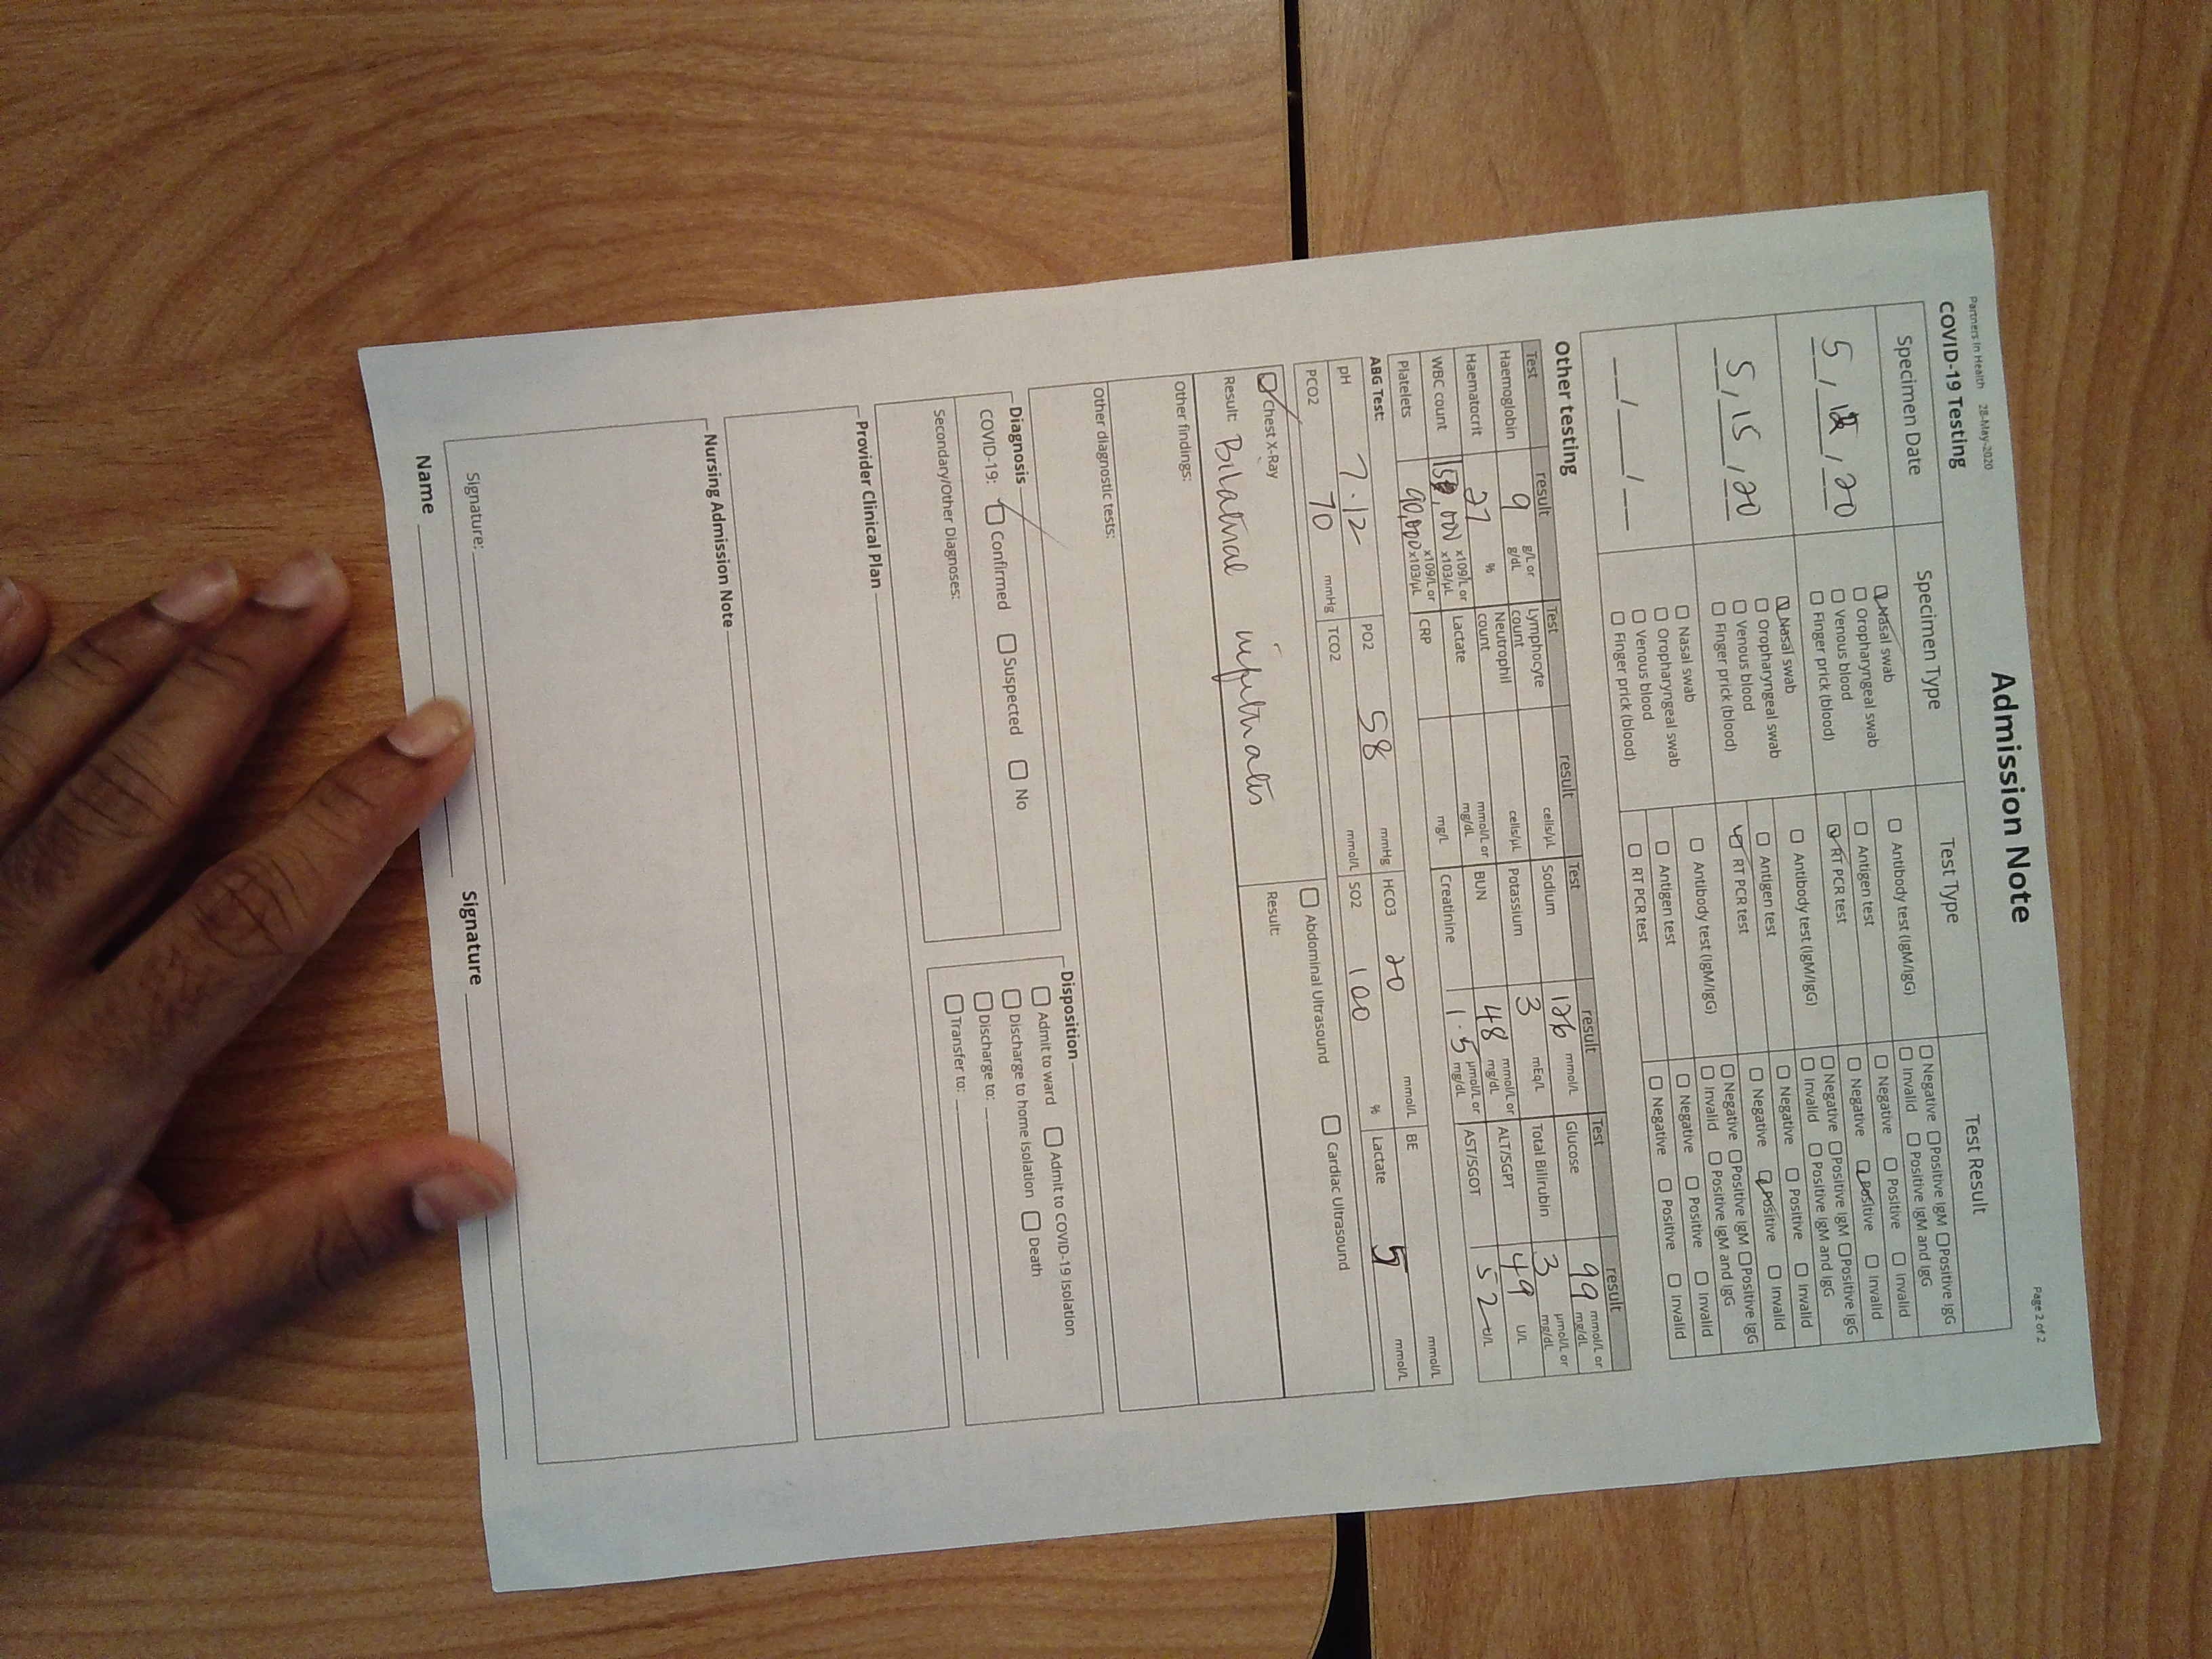 Partners In Health 28-May-2020
Page 2 of 2
Admission Note
COVID-19 Testing
Specimen Date Specimen Type Test Type Test Result
5 / 12 / 20
Nasal swab
Oropharyngeal swab
Venous blood
Finger prick (blood)
Antibody test (IgM/IgG)
Antigen test
RT PCR test
Negative Positive IgM Positive IgG
Invalid Positive IgM and IgG
Negative Positive Invalid
Negative Positive Invalid
5 / 15 / 20
Nasal swab
Oropharyngeal swab
Venous blood
Finger prick (blood)
Antibody test (IgM/IgG)
Antigen test
RT PCR test
Negative Positive IgM Positive IgG
Invalid Positive IgM and IgG
Negative Positive Invalid
Negative Positive Invalid
__/__/__
Nasal swab
Oropharyngeal swab
Venous blood
Finger prick (blood)
Antibody test (IgM/IgG)
Antigen test
RT PCR test
Negative Positive IgM Positive IgG
Invalid Positive IgM and IgG
Negative Positive Invalid
Negative Positive Invalid
Other testing
Test result Test result Test result Test result
Haemoglobin 9 g/L or g/dL Lymphocyte count cells/μL Sodium 126 mmol/L Glucose 99 mmol/L or mg/dL
Haematocrit 27 % Neutrophil count cells/μL Potassium 3 mEq/L Total Bilirubin 3 μmol/L or mg/dL
WBC count ,000 x109/L or x103/μL Lactate mmol/L or mg/dL BUN 48 mmol/L or mg/dL ALT/SGPT 49 U/L
Platelets 90,000 x109/L or x103/μL CRP mg/L Creatinine 1.5 μmol/L or mg/dL AST/SGOT 52 U/L
ABG Test:
pH 7.12 PO2 58 mmHg HCO3 20 mmol/L BE mmol/L
PCO2 70 mmHg TCO2 mmol/L SO2 100 % Lactate 5 mmol/L
Chest X-Ray Abdominal Ultrasound Cardiac Ultrasound
Result: Bilatral infiltrates Result:
Other findings:
Other diagnostic tests:
Diagnosis
COVID-19: Confirmed Suspected No
Secondary/Other Diagnoses:
Disposition
Admit to ward Admit to COVID-19 Isolation
Discharge to home isolation Death
Discharge to:
Transfer to:
Provider Clinical Plan
Nursing Admission Note
Signature:
Name Signature